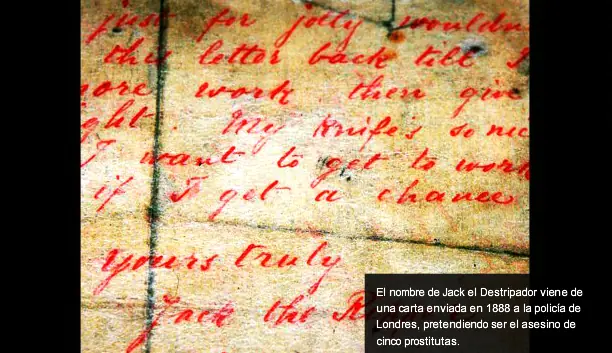 just for jolly wouldn
this letter back till I
more work then give
ght. My knifes so nic
I want to get to work
if I get a chance
yours truly
Jack the R
El nombre de Jack el Destripador viene de
una carta enviada en 1888 a la policía de
Londres, pretendiendo ser el asesino de
cinco prostitutas.